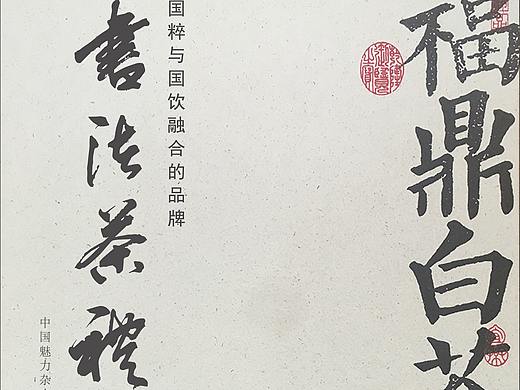 福鼎白茶
国粹与国饮融合的品牌
書法茶禮
中国魅力杂